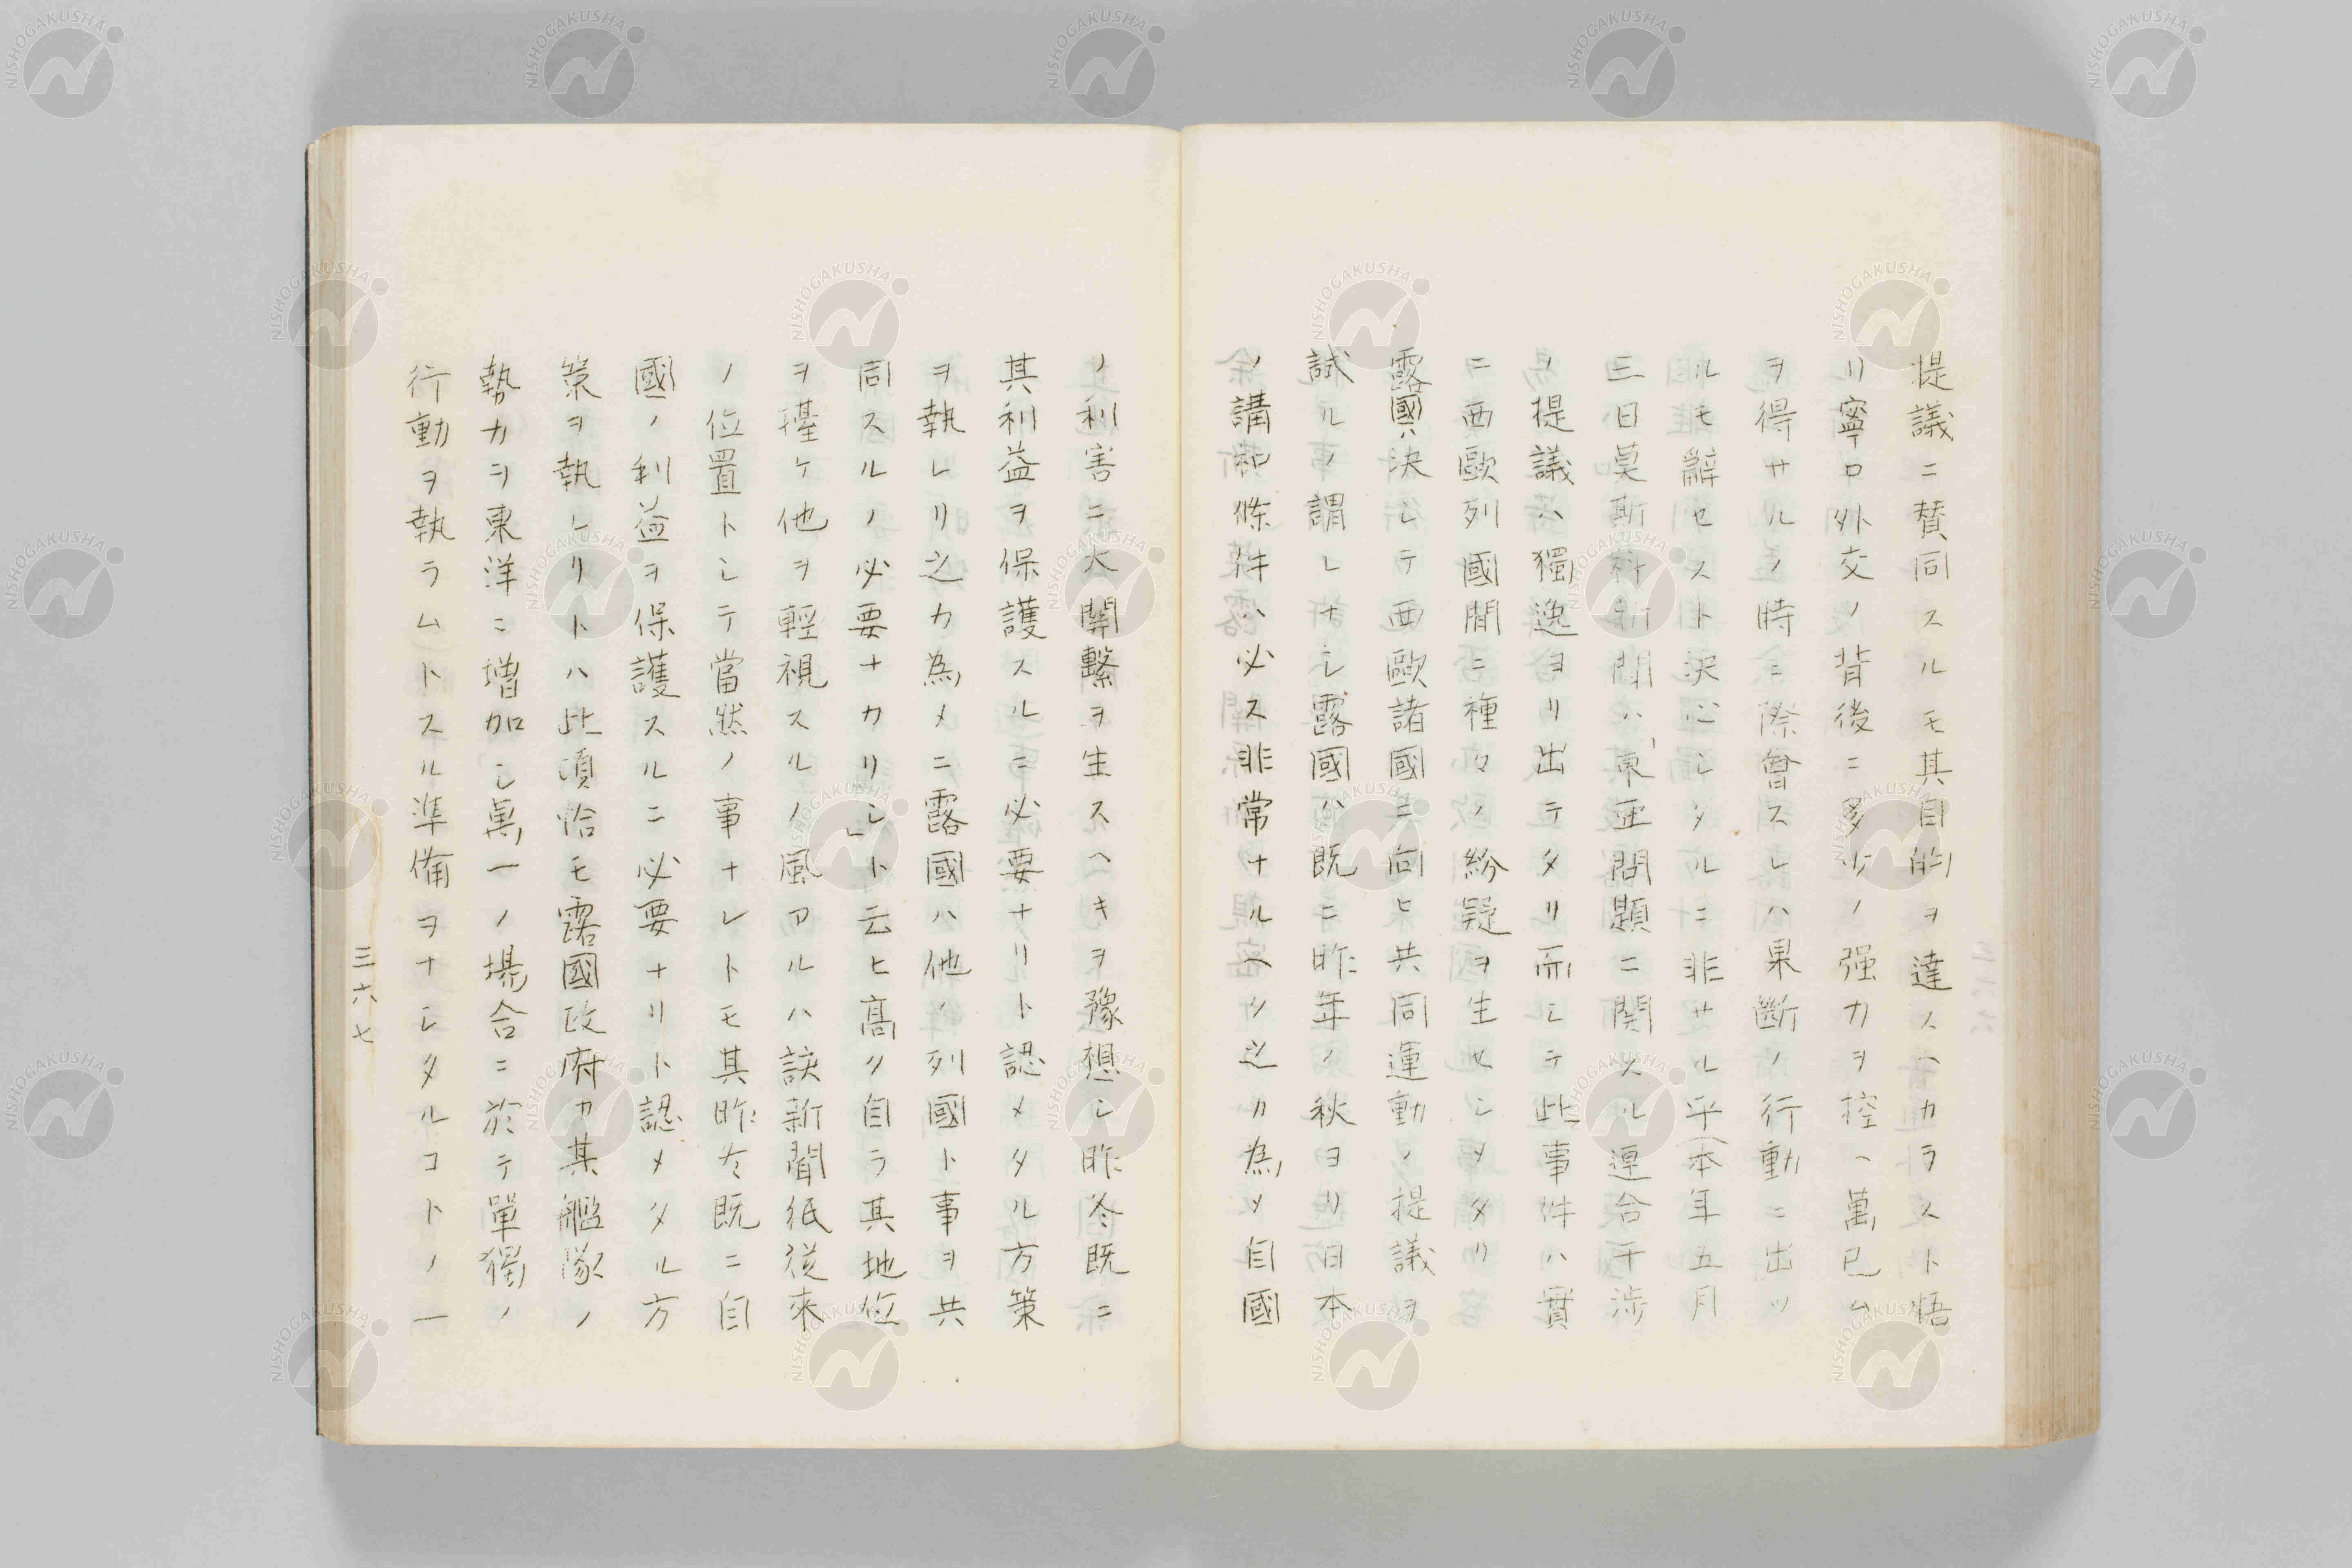 提議ニ賛同スルモ其目的ヲ達スヘカラスト悟
リ寧ロ外交ノ背後ニ多少ノ强力ヲ控ヘ萬已ム
ヲ得サルノ時ニ際會スレハ果斷ノ行動ニ出ツ
ルモ辭セスト決心シタルニ非サル乎(本年五月
三日莫斯科新聞ハ「東亜問題ニ関スル連合干渉
ノ提議ハ獨逸ヨリ出テタリ而シテ此事件ハ實
ニ西歐列國間ニ種々ノ紛疑ヲ生セシメタリ
露國ハ決シテ西歐諸國ニ向ヒ共同運動ノ提議ヲ
試ルノ謂レナシ露國ハ既ニ昨年ノ秋ヨリ日本
ノ講和條件ハ必ス非常ナルヘク之カ為メ自國
ノ利害ニ大関繫ヲ生スヘキヲ豫想シ昨冬既ニ
其利益ヲ保護スルニ必要ナリト認メタル方策
ヲ執レリ之カ為メニ露國ハ他ノ列國ト事ヲ共
同スルノ必要ナカリシ」ト云ヒ髙ク自ラ其地位
ヲ擡ケ他ヲ輕視スルノ風アルハ該新聞紙従來
ノ位置トシテ當然ノ事ナレトモ其昨冬既ニ自
國ノ利益ヲ保護スルニ必要ナリト認メタル方
策ヲ執レリトハ此頃恰モ露國政府カ其艦隊ノ
勢力ヲ東洋ニ增加シ萬一ノ場合ニ於テ單獨ノ
行動ヲ執ラムトスル準備ヲナシタルコトノ一
三六七
NISHOGAKUSHA